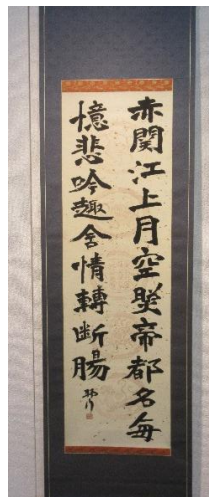 赤関江上月空帝都名毎
憶悲吟趣含情轉断腸